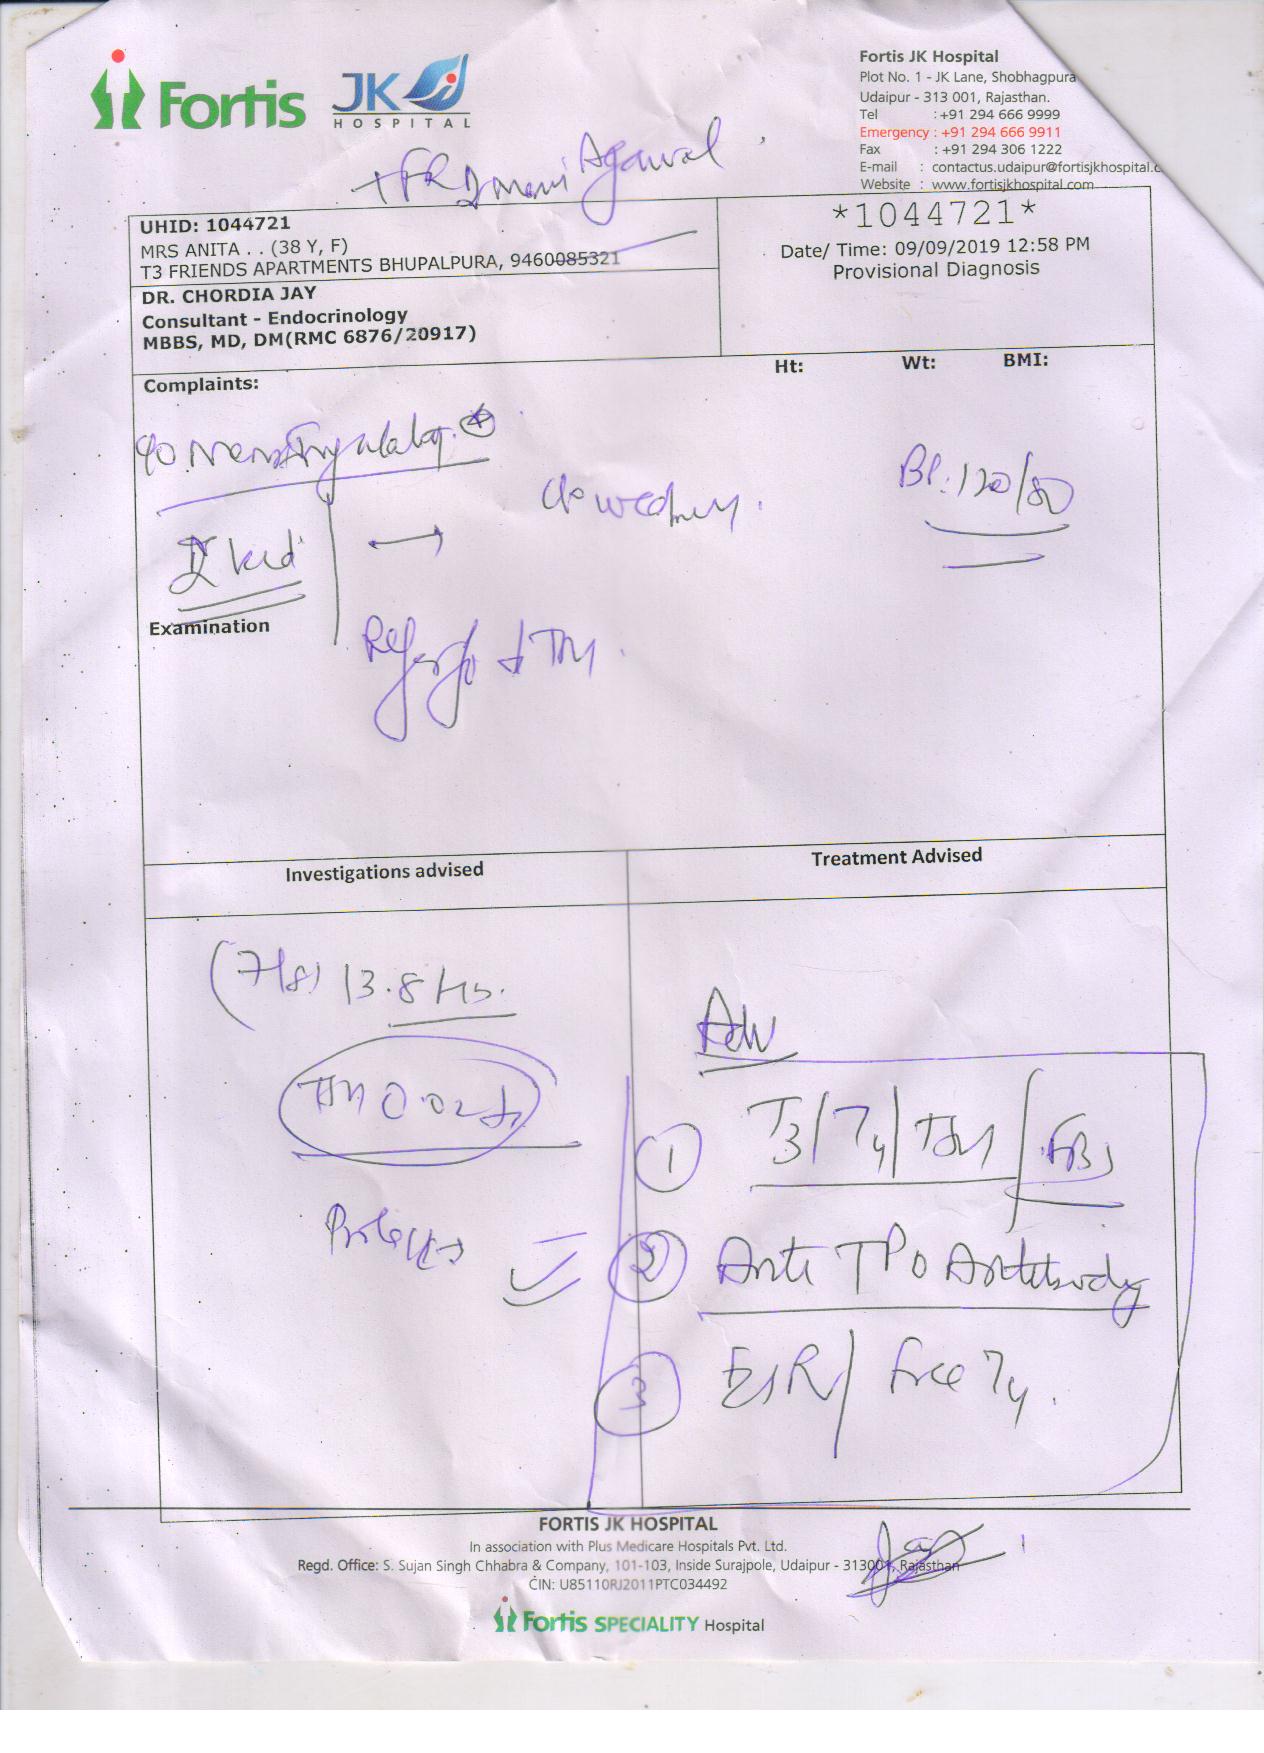 Fortis JK HOSPITAL
Fortis JK Hospital
Plot No. 1 - JK Lane, Shobhagpura
Udaipur - 313 001, Rajasthan.
Tel : +91 294 666 9999
Emergency : +91 294 666 9911
Fax : +91 294 306 1222
E-mail : contactus.udaipur@fortisjkhospital.c
Website : www.fortisjkhospital.com
Agarwal
UHID: 1044721
MRS ANITA . . (38 Y, F)
T3 FRIENDS APARTMENTS BHUPALPURA, 9460085321
*1044721*
Date/ Time: 09/09/2019 12:58 PM
Provisional Diagnosis
DR. CHORDIA JAY
Consultant - Endocrinology
MBBS, MD, DM(RMC 6876/20917)
Ht: Wt: BMI:
Complaints:
c/o
c/o weakness.
BP. 120/80
II kid
Examination
TSH.
Investigations advised
Treatment Advised
(7/8) 13.8 Hb.
TSH 0.02
Adv
1 T3/T4/TSH/FBS
2 Anti TPO Antibody
3 ESR/ Free T4.
FORTIS JK HOSPITAL
In association with Plus Medicare Hospitals Pvt. Ltd.
Regd. Office: S. Sujan Singh Chhabra & Company, 101-103, Inside Surajpole, Udaipur - 313001, Rajasthan
CIN: U85110RJ2011PTC034492
Fortis SPECIALITY Hospital